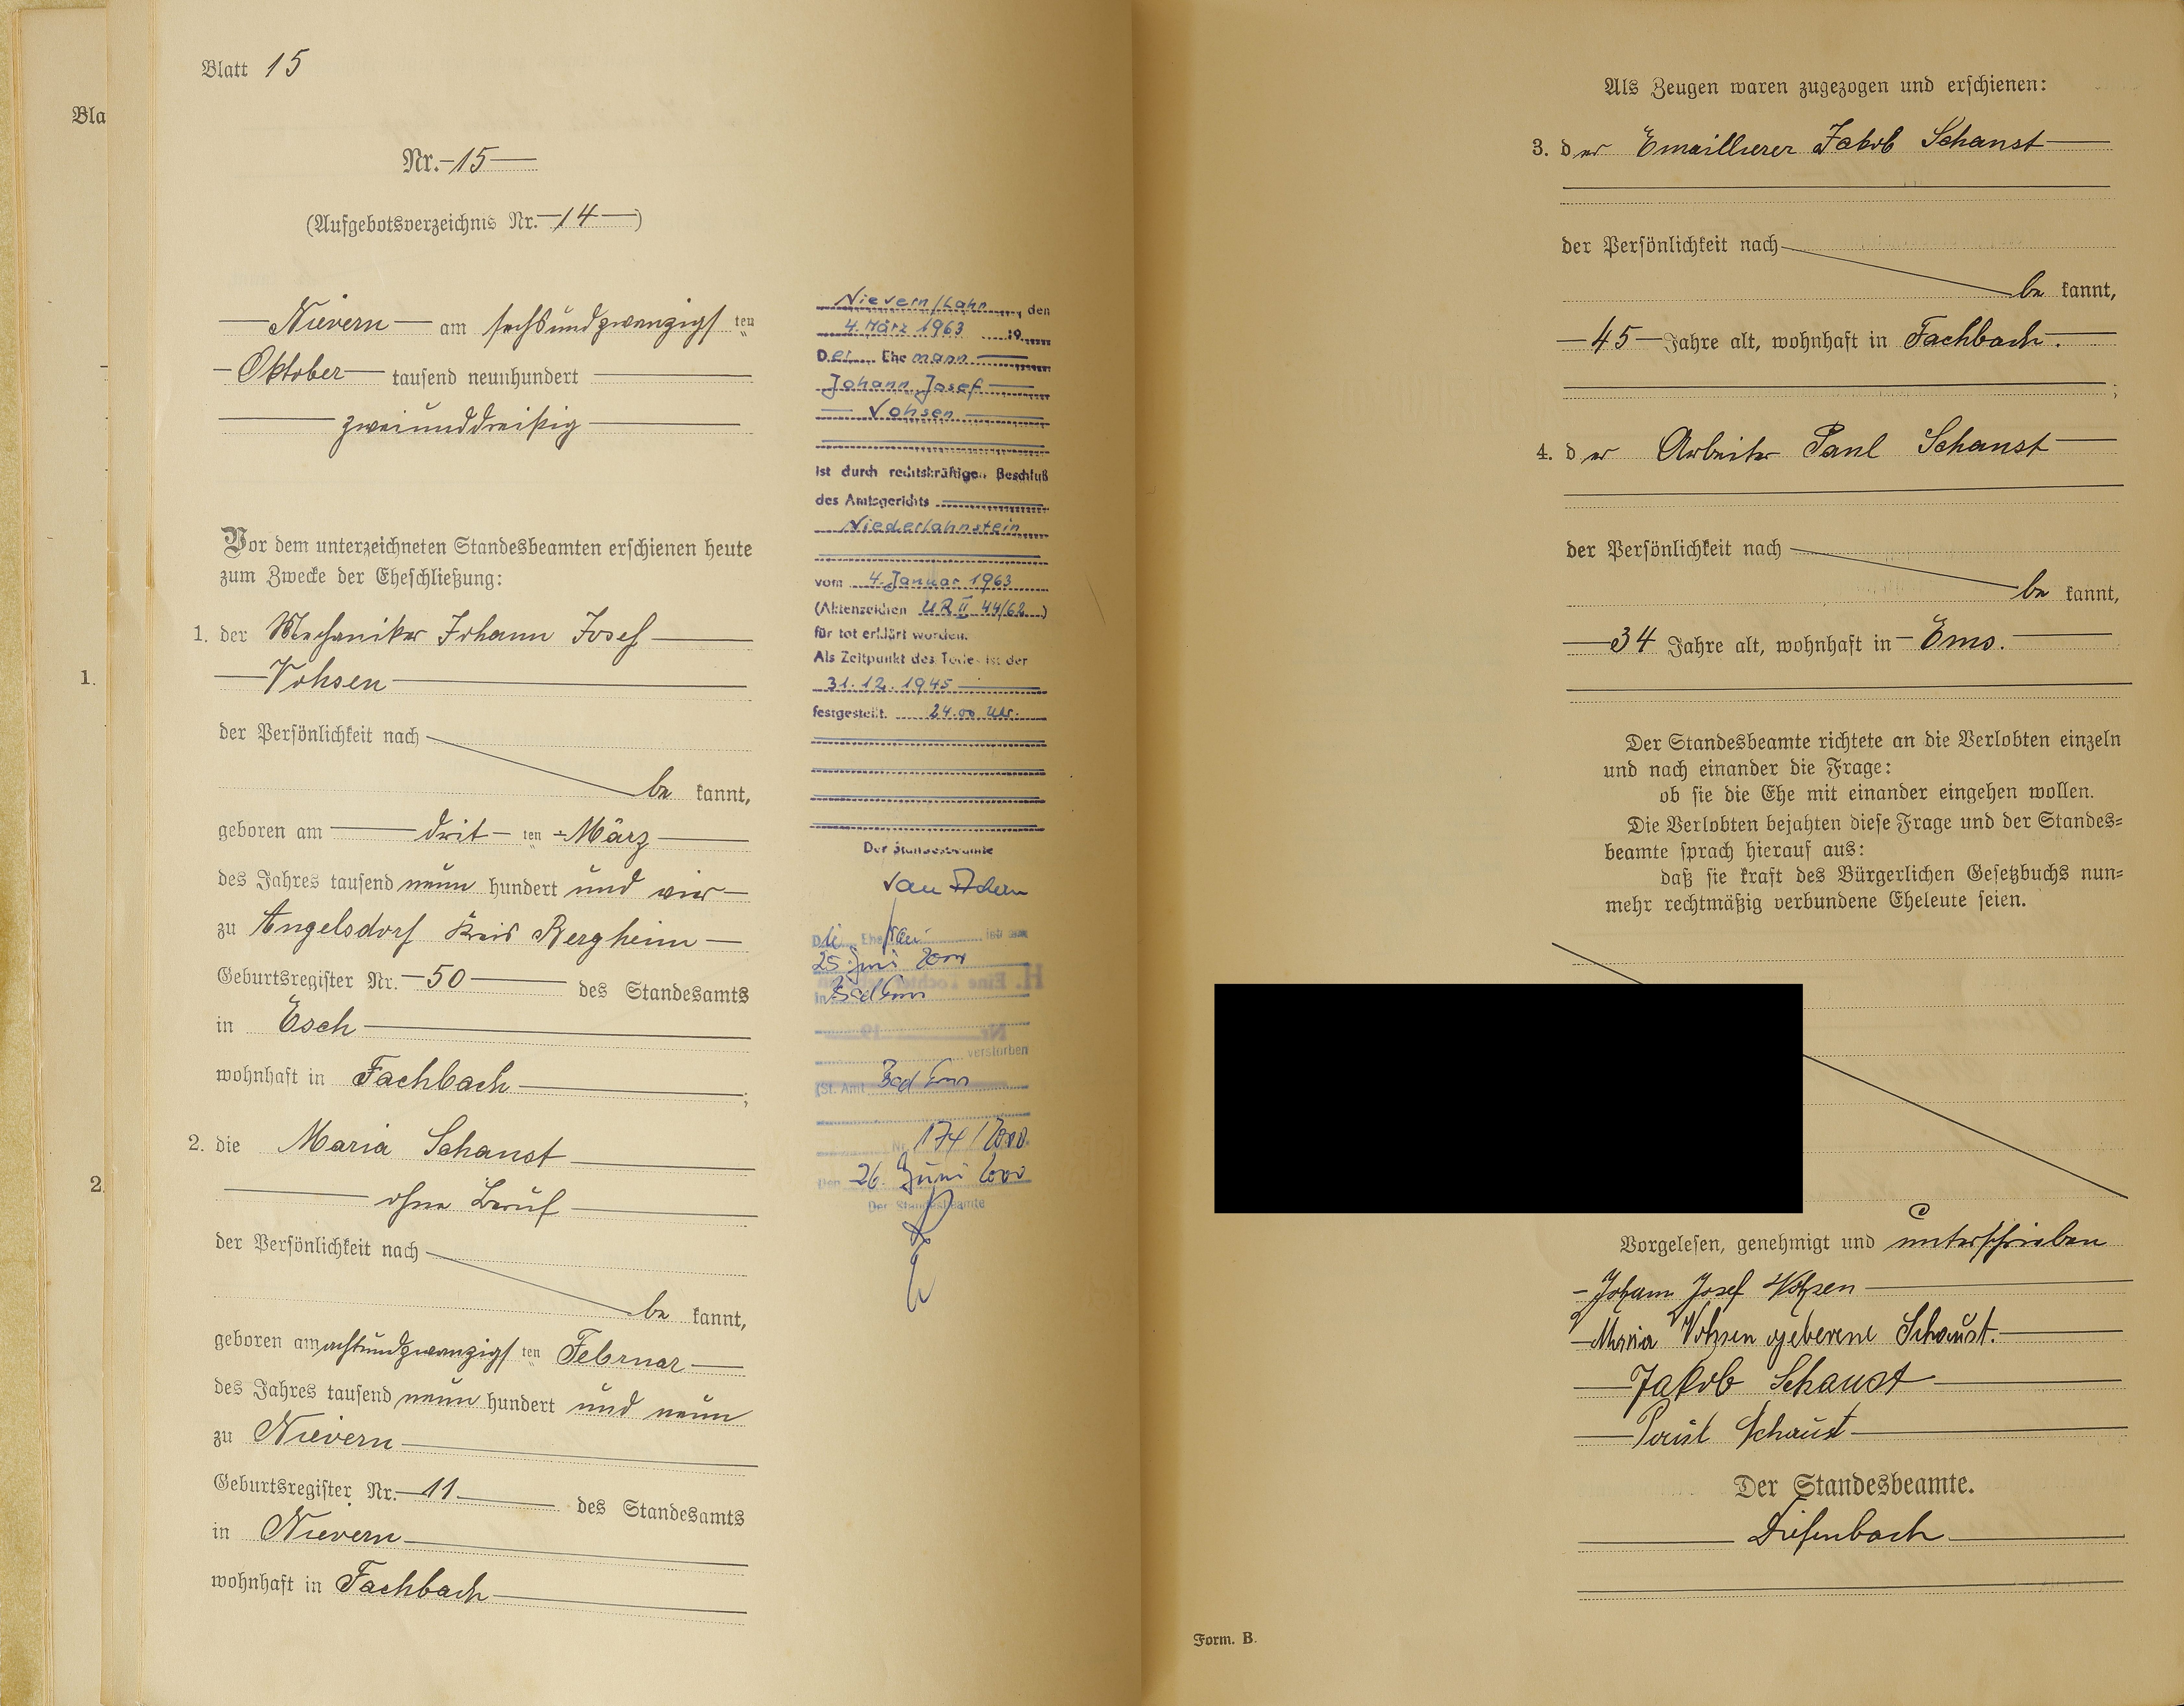 Bla
1.
2.
Blatt 15
Nr. 15
(Aufgebotsverzeichnis Nr. 14)
Nievern am sechsundzwanzigsten
Oktober tausend neunhundert
zweiunddreißig
Vor dem unterzeichneten Standesbeamten erschienen heute
zum Zwecke der Eheschließung:
1. der Mechaniker Johann Josef
Vohsen
der Persönlichkeit nach
be kannt,
geboren am dritten März
des Jahres tausend neun hundert und vier
zu Angelsdorf Kreis Bergheim
Geburtsregister Nr. 50 des Standesamts
in Esch
wohnhaft in Fachbach;
2. die Maria Schaust
ohne Beruf
der Persönlichkeit nach
be kannt,
geboren am achtundzwanzigsten Februar
des Jahres tausend neun hundert und neun
zu Nievern
Geburtsregister Nr. 11 des Standesamts
in Nievern
wohnhaft in Fachbach
Nievern/Lahn, den
4. März 1963 19
Der Ehemann
Johann Josef
Vohsen
ist durch rechtskräftigen Beschluß
des Amtsgerichts
Niederlahnstein
vom 4. Januar 1963
(Aktenzeichen UR II 44/62)
für tot erklärt worden.
Als Zeitpunkt des Todes ist der
31.12.1945
festgestellt. 24.00 Uhr.
Der Standesbeamte
Die Ehefrau ist am
25. Juni 2000
in Bad Ems
verstorben
(St. Amt Bad Ems
Nr. 174/2000
Den 26. Juni 2000
Der Standesbeamte
Als Zeugen waren zugezogen und erschienen:
3. der Emaillierer Jakob Schaust
der Persönlichkeit nach
be kannt,
45 Jahre alt, wohnhaft in Fachbach.
;
4. der Arbeiter Paul Schaust
der Persönlichkeit nach
be kannt,
34 Jahre alt, wohnhaft in Ems.
Der Standesbeamte richtete an die Verlobten einzeln
und nach einander die Frage:
ob sie die Ehe mit einander eingehen wollen.
Die Verlobten bejahten diese Frage und der Standes=
beamte sprach hierauf aus:
daß sie kraft des Bürgerlichen Gesetzbuchs nun=
mehr rechtmäßig verbundene Eheleute seien.
Vorgelesen, genehmigt und unterschrieben
Johann Josef Vohsen
Maria Vohsen geborene Schaust.
Jakob Schaust
Paul Schaust
Der Standesbeamte.
Diefenbach
Form. B.